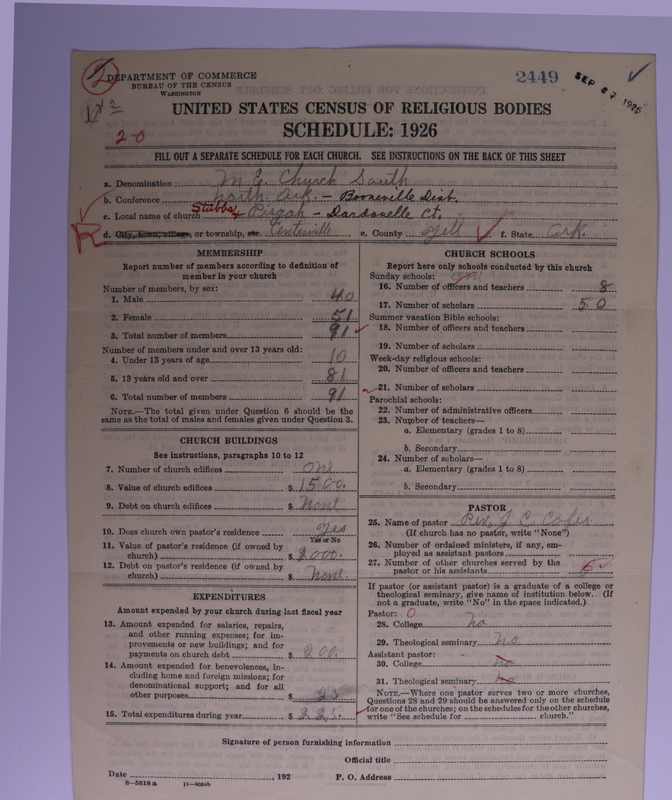 DEPARTMENT OF COMMERCE
BUREAU OF THE CENSUS
WASHINGTON
2449
SEP 27 1926
2-0
UNITED STATES CENSUS OF RELIGIOUS BODIES
SCHEDULE: 1926
FILL OUT A SEPARATE SCHEDULE FOR EACH CHURCH. SEE INSTRUCTIONS ON THE BACK OF THIS SHEET
a. Denomination M E Church South
b. Conference North Ark. - Booneville Dist.
c. Local name of church Pisgah - Dardanelle Ct.
d. City, town, village, or township, etc. Centerville e. County Yell f. State Ark.
MEMBERSHIP
Report number of members according to definition of member in your church
Number of members, by sex:
1. Male 40
2. Female 51
3. Total number of members 91
Number of members under and over 13 years old:
4. Under 13 years of age 10
5. 13 years old and over 81
6. Total number of members 91
NOTE.—The total given under Question 6 should be the
same as the total of males and females given under Question 3.
CHURCH BUILDINGS
See instructions, paragraphs 10 to 12
7. Number of church edifices One
8. Value of church edifices $ 1500.
9. Debt on church edifices $ None
10. Does church own pastor's residence yes
Yes or No
11. Value of pastor's residence (if owned by
church) $ 2000.
12. Debt on pastor's residence (if owned by
church) $ None.
EXPENDITURES
Amount expended by your church during last fiscal year
13. Amount expended for salaries, repairs,
and other running expenses; for im-
provements or new buildings; and for
payments on church debt $ 200.
14. Amount expended for benevolences, in-
cluding home and foreign missions; for
denominational support; and for all
other purposes $ 25
15. Total expenditures during year $ 225.
CHURCH SCHOOLS
Report here only schools conducted by this church
Sunday schools:
16. Number of officers and teachers 8
17. Number of scholars 50
Summer vacation Bible schools:
18. Number of officers and teachers
19. Number of scholars
Week-day religious schools:
20. Number of officers and teachers
21. Number of scholars
Parochial schools:
22. Number of administrative officers
23. Number of teachers—
a. Elementary (grades 1 to 8)
b. Secondary
24. Number of scholars—
a. Elementary (grades 1 to 8)
b. Secondary
PASTOR
25. Name of pastor Rev. J. C.
(If church has no pastor, write "None")
26. Number of ordained ministers, if any, em-
ployed as assistant pastors
27. Number of other churches served by the
pastor or his assistants 6
If pastor (or assistant pastor) is a graduate of a college or
theological seminary, give name of institution below. (If
not a graduate, write "No" in the space indicated.)
Pastor: 0
28. College no
29. Theological seminary no
Assistant pastor:
30. College no
31. Theological seminary no
NOTE.—Where one pastor serves two or more churches,
Questions 28 and 29 should be answered only on the schedule
for one of the churches; on the schedules for the other churches,
write "See schedule for church."
Signature of person furnishing information
Official title
Date , 192 P. O. Address
8-5518a 11-9054b